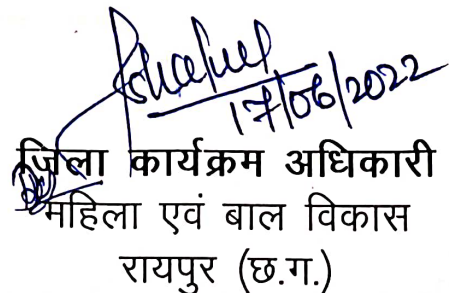 17/06/2022
जिला कार्यक्रम अधिकारी
महिला एवं बाल विकास
रायपुर (छ.ग.)